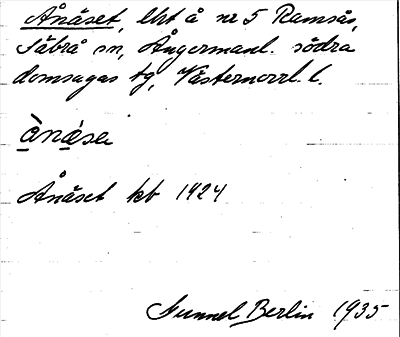 Ånäset, lht å nr 5 Ramsås,
Säbrå sn, Ångermanl. södra
domsagas tg, Västernorrl. l.
ànäse
Ånäset kb 1924
Gunnel Berlin 1935